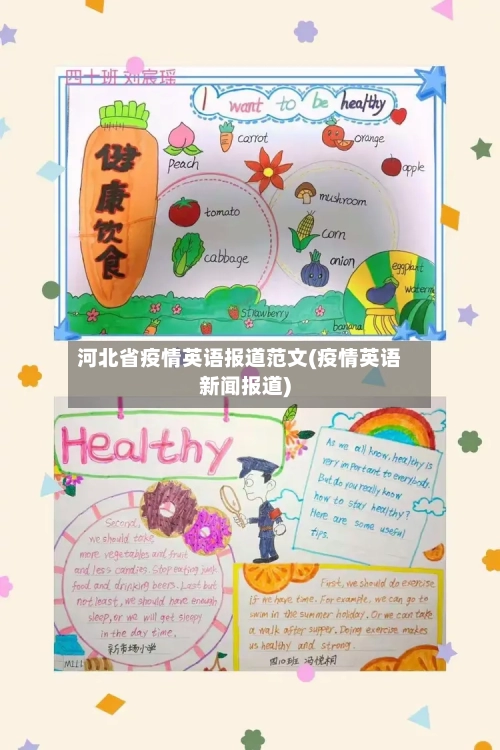 四十班 刘宸瑶
I want to be healthy
健康饮食
peach
carrot
orange
apple
tomato
mushroom
cabbage
corn
onion
eggplant
strawberry
banana
河北省疫情英语报道范文(疫情英语
新闻报道)
Healthy
As we all know, healthy is
very important to everybody.
But do you really know
how to stay healthy?
Here are some useful
tips.
Second,
we should take
more vegetables and fruit
and less candies. Stop eating junk
food and drinking beers. Last but
not least, we should have enough
sleep, or we will get sleepy
in the day time.
新市场小学
First, we should do exercise
if we have time. For example, we can go to
swim in the summer holiday. Or we can take
a walk after supper. Doing exercise makes
us healthy and strong.
四(1)班 冯悦桐